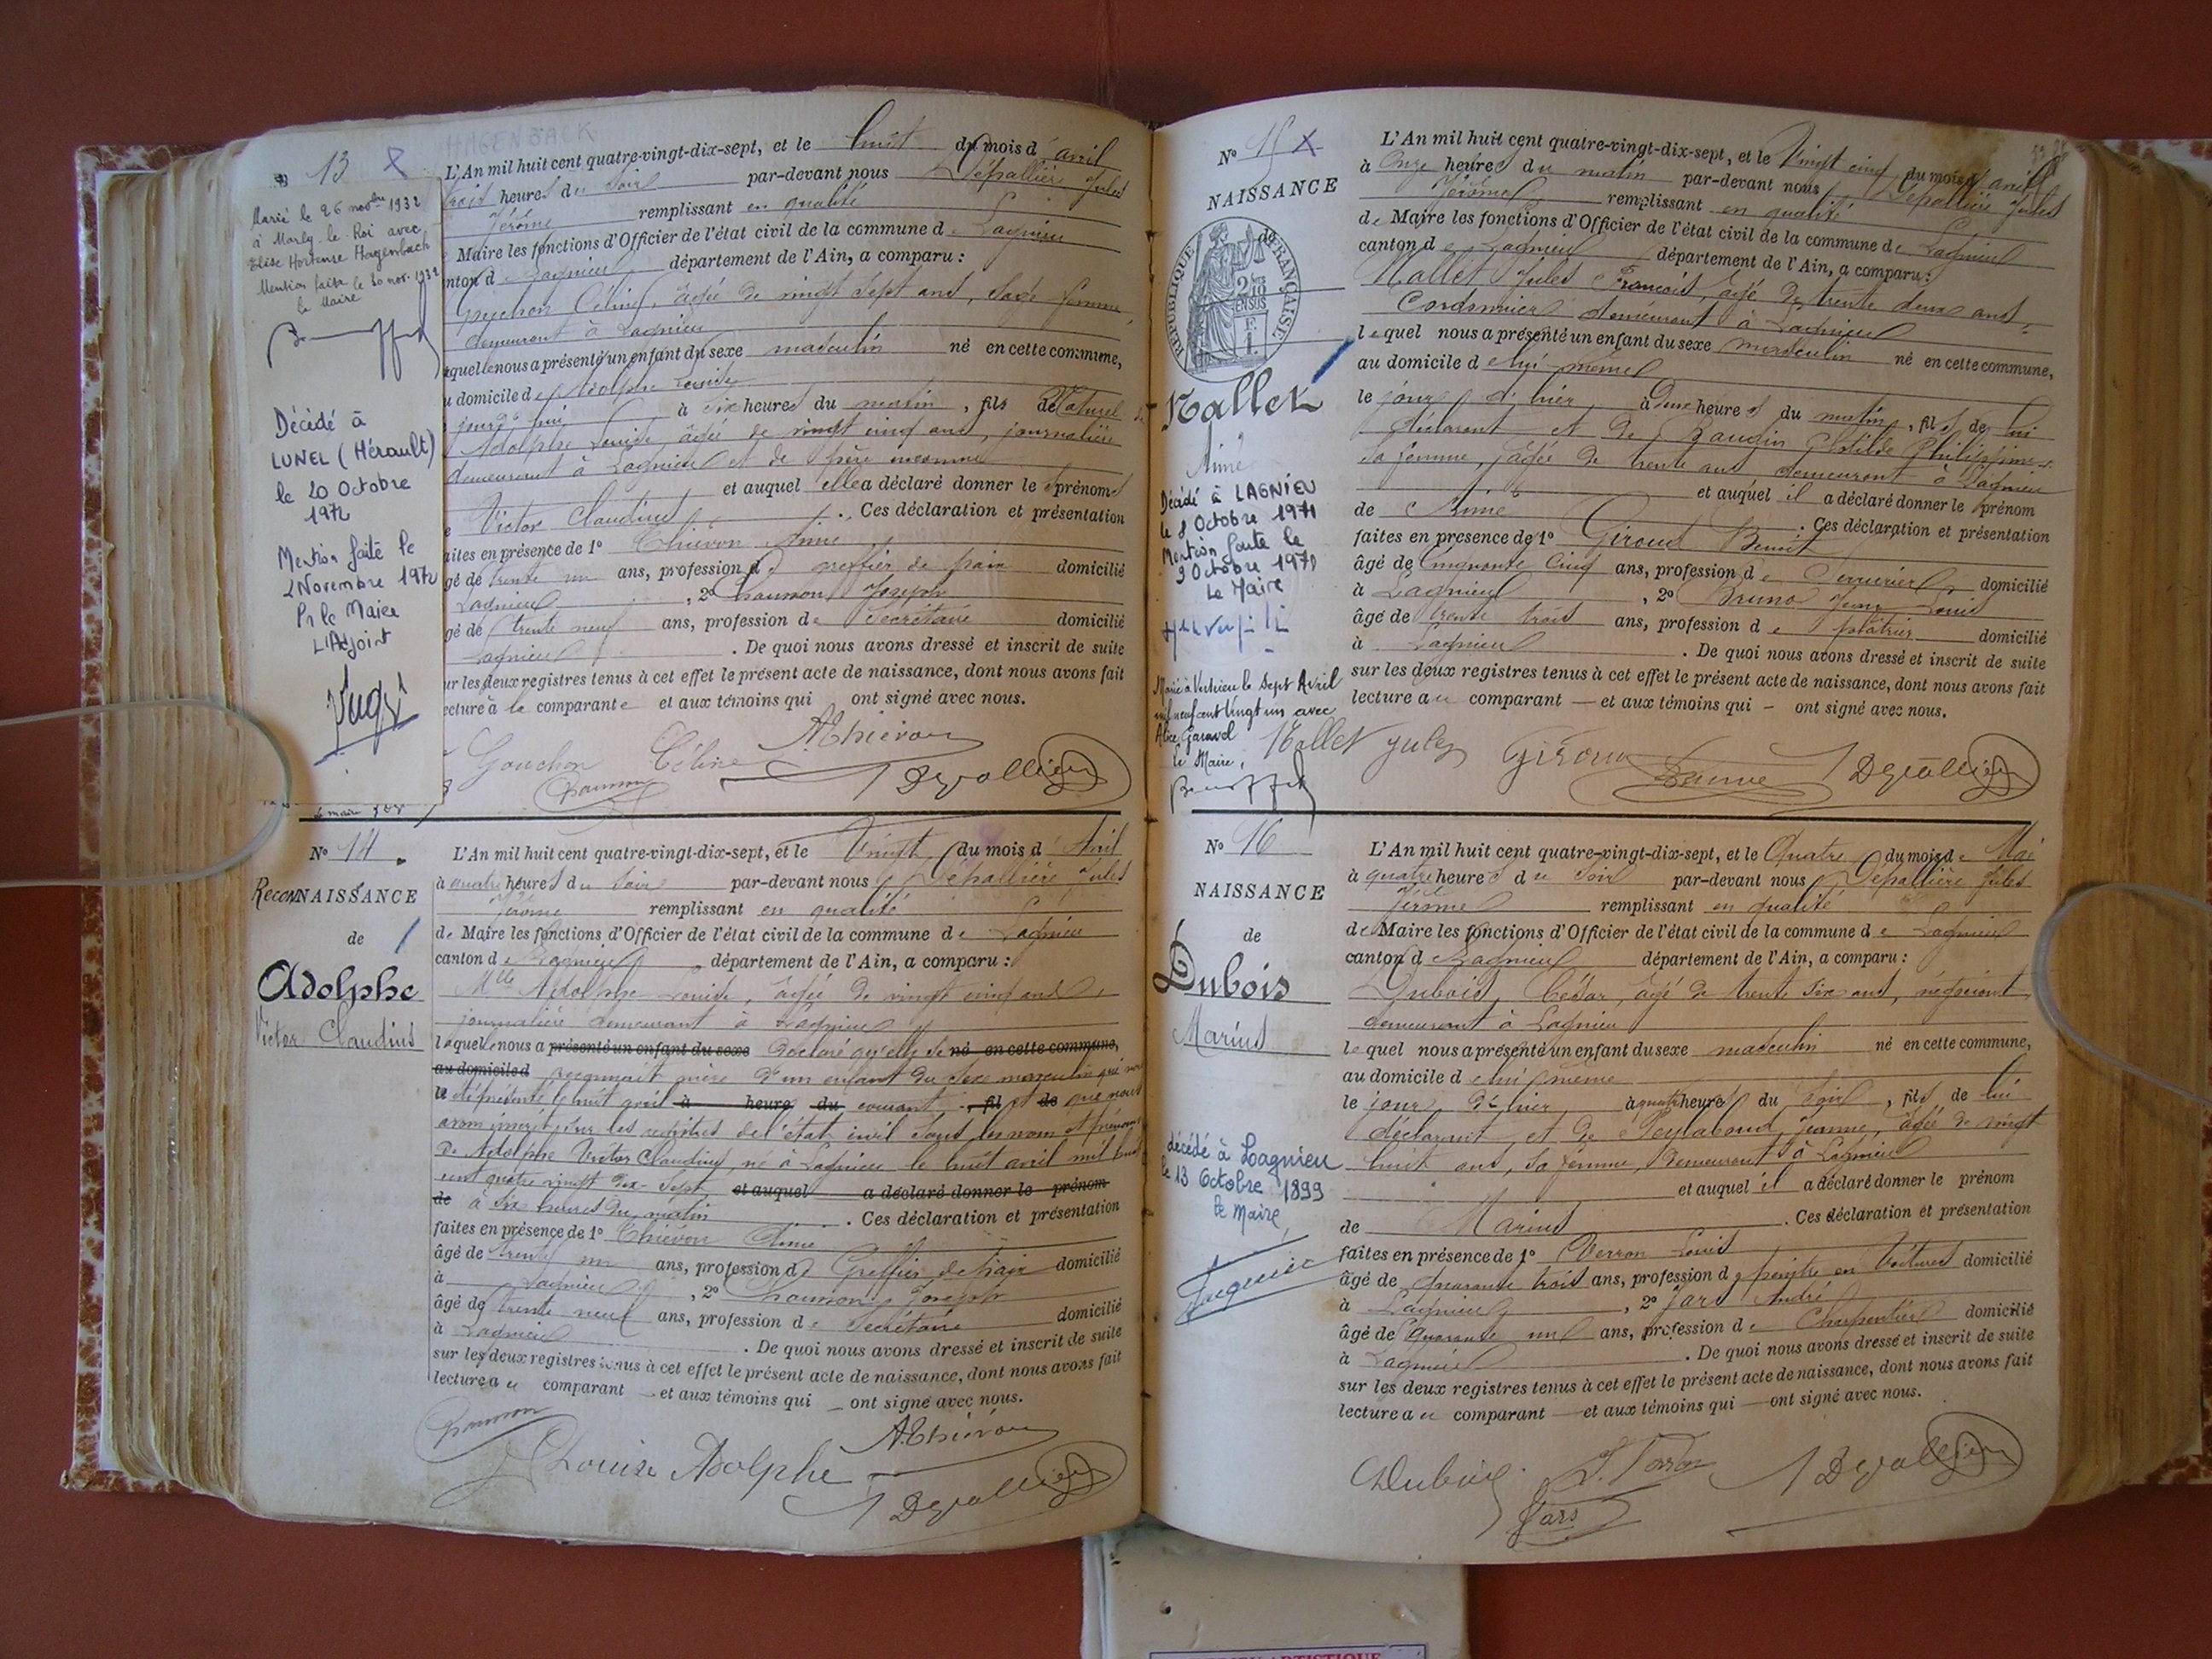 HAGENBACK
13
Marié le 26 novbre 1932
à Marly-le-Roi avec
Elise Hortense Hagenbach
Mention faite le 30 nov. 1932
le Maire
Décédé à
LUNEL (Hérault)
le 20 Octobre
1972
Mention faite le
2 Novembre 1972
Pr le Maire
L'Adjoint
L'An mil huit cent quatre-vingt-dix-sept, et le huit du mois d'avril
trois heures du soir par-devant nous Dépallière Jules
Jérôme remplissant en qualité
e Maire les fonctions d'Officier de l'état civil de la commune de Lagnieu
nton de Lagnieu département de l'Ain, a comparu :
Gouchon Céline, âgée de vingt sept ans, sage femme
demeurant à Lagnieu
aquelle nous a présenté un enfant du sexe masculin né en cette commune,
u domicile de Adolphe Louise
à six heures du matin, fils Naturel de
Adolphe Louise, âgée de vingt cinq ans, journalière
demeurant à Lagnieu et de père inconnu
et auquel elle a déclaré donner les prénoms
e Victor Claudius. Ces déclaration et présentation
aites en présence de 1° Thiévon Aimé
gé de trente un ans, profession de greffier de paix domicilié
Lagnieu, 2° Chaumon Joseph
gé de trente neuf ans, profession de Secrétaire domicilié
Lagnieu. De quoi nous avons dressé et inscrit de suite
ur les deux registres tenus à cet effet le présent acte de naissance, dont nous avons fait
ecture à la comparante et aux témoins qui ont signé avec nous.
Gouchon Céline AThiévon
Chaumon J Depallière
No 14
ReconNAISSANCE
de
Adolphe
Victor Claudius
L'An mil huit cent quatre-vingt-dix-sept, et le Vingt du mois d'Avril
à quatre heures du soir par-devant nous Dépallière Jules
Jérôme remplissant en qualité
de Maire les fonctions d'Officier de l'état civil de la commune de Lagnieu
canton de Lagnieu département de l'Ain, a comparu :
Mlle Adolphe Louise, âgée de vingt cinq ans,
journalière demeurant à Lagnieu
laquelle nous a présenté un enfant du sexe déclaré qu'elle se né en cette commune,
au domicile d reconnait mère d'un enfant du sexe masculin qui
le huit avril à heure du courant, fil et de que nous
avons inscrit sur les registres de l'état civil sous les nom et prénoms
de Adolphe Victor Claudius, né à Lagnieu le huit avril mil huit
cent quatre vingt dix-sept et auquel a déclaré donner le prénom
de à six heures du matin. Ces déclaration et présentation
faites en présence de 1° Thiévon Aimé
âgé de trente un ans, profession de Greffier de paix domicilié
à Lagnieu, 2° Chaumon Joseph
âgé de trente neuf ans, profession de Secrétaire domicilié
à Lagnieu. De quoi nous avons dressé et inscrit de suite
sur les deux registres tenus à cet effet le présent acte de naissance, dont nous avons fait
lecture au comparant et aux témoins qui ont signé avec nous.
Chaumon AThiévon
Louise Adolphe
J Depallière
No 15 X
NAISSANCE
RÉPUBLIQUE FRANÇAISE
Nallet
Aimé
Décédé à LAGNIEU
le 8 Octobre 1971
Mention faite le
9 Octobre 1971
Le Maire
Marié à Vertrieu le Sept Avril
mil neuf cent vingt un avec
Alice Garavel
le Maire,
L'An mil huit cent quatre-vingt-dix-sept, et le Vingt cinq du mois d'avril
à Onze heures du matin par-devant nous Dépallière Jules
Jérôme remplissant en qualité
de Maire les fonctions d'Officier de l'état civil de la commune de Lagnieu
canton de Lagnieu département de l'Ain, a comparu :
Nallet Jules François, âgé de trente deux ans,
Cordonnier demeurant à Lagnieu
lequel nous a présenté un enfant du sexe masculin né en cette commune,
au domicile de lui même
le jour d'hier à heures du matin, fils de lui
déclarant et de Baudin Clotilde Philippine
sa femme, âgée de trente ans demeurant à Lagnieu
et auquel il a déclaré donner le prénom
de Aimé. Ces déclaration et présentation
faites en présence de 1° Giroud Benoit
âgé de Cinquante Cinq ans, profession de Serrurier domicilié
à Lagnieu, 2° Bruno Louis
âgé de trente trois ans, profession de plâtrier domicilié
à Lagnieu. De quoi nous avons dressé et inscrit de suite
sur les deux registres tenus à cet effet le présent acte de naissance, dont nous avons fait
lecture au comparant et aux témoins qui ont signé avec nous.
Nallet Jules Giroud J Depallière
No 16
NAISSANCE
de
Dubois
Marius
décédé à Lagnieu
le 13 Octobre 1899
le Maire,
L'An mil huit cent quatre-vingt-dix-sept, et le Quatre du mois de Mai
à quatre heures du soir par-devant nous Dépallière Jules
Jérôme remplissant en qualité
de Maire les fonctions d'Officier de l'état civil de la commune de Lagnieu
canton de Lagnieu département de l'Ain, a comparu :
Dubois, César, âgé de trente six ans, négociant
demeurant à Lagnieu
lequel nous a présenté un enfant du sexe masculin né en cette commune,
au domicile de lui même
le jour d'hier à quatre heures du soir, fils de lui
déclarant et de Jeanne, âgée de vingt
huit ans, sa femme, demeurant à Lagnieu
et auquel il a déclaré donner le prénom
de Marius. Ces déclaration et présentation
faites en présence de 1° Verron Louis
âgé de quarante trois ans, profession de peintre en Voitures domicilié
à Lagnieu, 2° Jars André
âgé de quarante un ans, profession de Charpentier domicilié
à Lagnieu. De quoi nous avons dressé et inscrit de suite
sur les deux registres tenus à cet effet le présent acte de naissance, dont nous avons fait
lecture au comparant et aux témoins qui ont signé avec nous.
CDubois L. Verron J Depallière
Jars